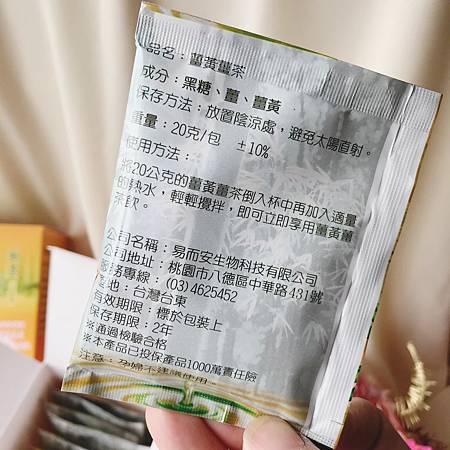 品名：薑黃薑茶
成分：黑糖、薑、薑黃
保存方法：放置陰涼處，避免太陽直射。
重量：20克/包 ±10%
使用方法：
將20公克的薑黃薑茶倒入杯中再加入適量
的熱水，輕輕攪拌，即可立即享用薑黃薑
茶飲。
公司名稱：易而安生物科技有限公司
公司地址：桃園市八德區中華路431號
服務專線：(03)4625452
產地：台灣台東
有效期限：標於包裝上
保存期限：2年
※通過檢驗合格
※本產品已投保產品1000萬責任險
注意：孕婦不建議使用。